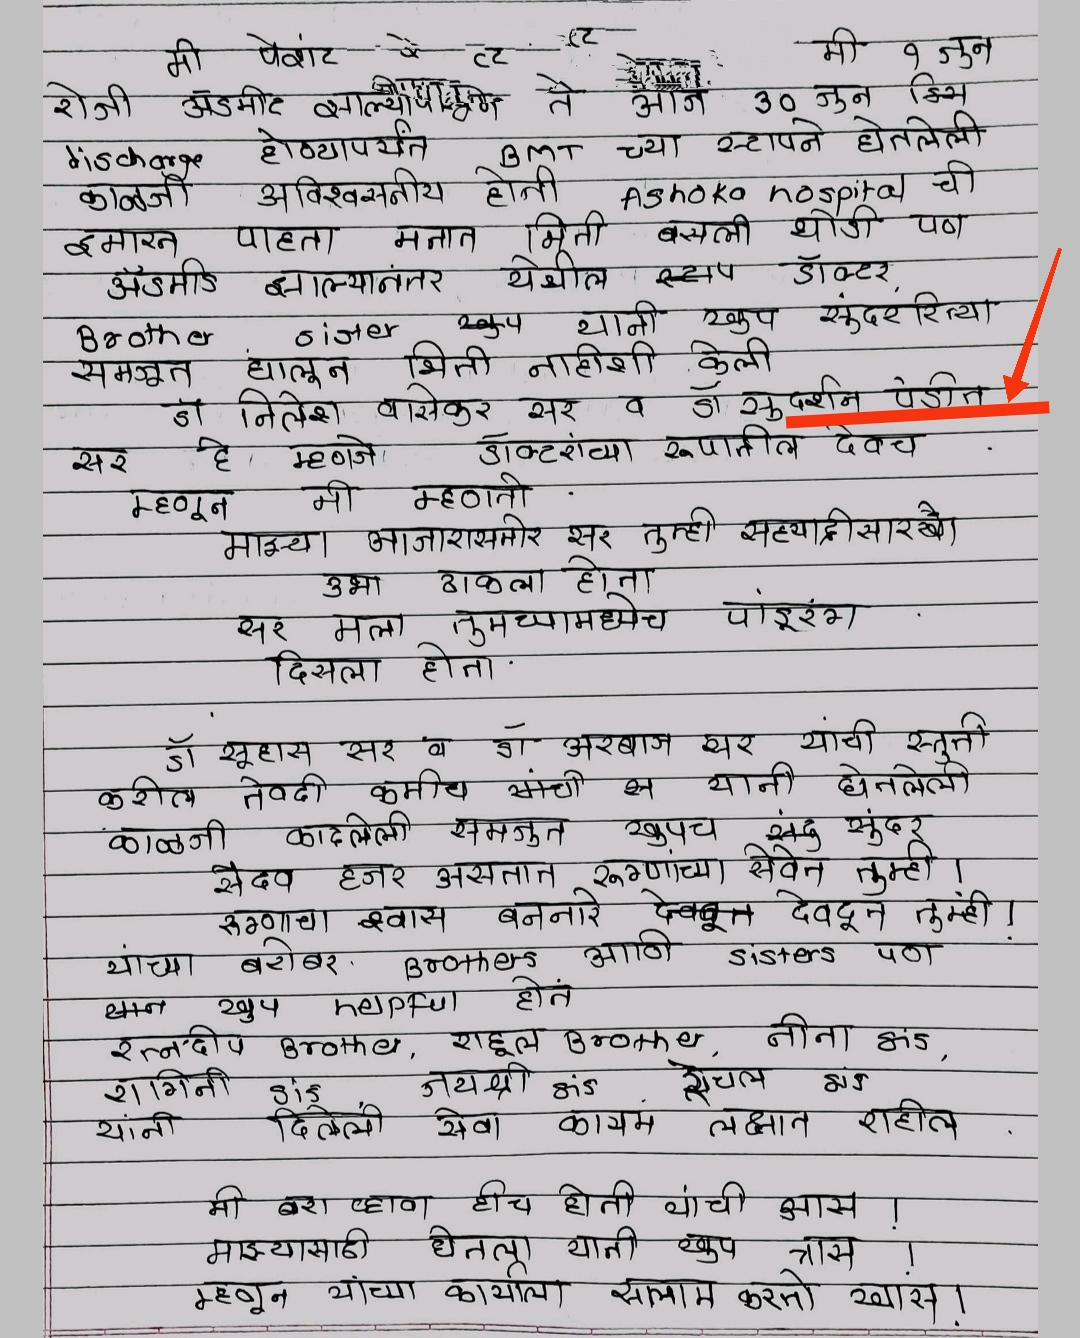 मी पेशंट मी १ जुन
रोजी ॲडमीट झाल्यापासून ते आज ३० जुन
Discharge होण्यापर्यंत BMT च्या स्टापने घेतलेली
काळजी अविश्वसनीय होती Ashoka hospital ची
इमारत पाहता मनात भिती बसली थोडी पण
ॲडमीड झाल्यानंतर येथील स्टाप डॉक्टर,
Brother sister खुप यानी खुप सुंदररित्या
समजूत घालून भिती नाहीशी केली
डॉ निलेश वासेकर सर व डॉ सुदर्शन पंडीत
सर हे म्हणजे डॉक्टरांच्या रूपातील देवच .
म्हणून मी म्हणतो .
माझ्या आजारासमोर सर तुम्ही सह्याद्रीसारखे
उभा ठाकला होता
सर मला तुमच्यामध्येच पांडूरंग .
दिसला होता.
डॉ सूहास सर व डॉ अरबाज सर यांची स्तुती
करील तेवढी कमीच यांची यानी घेतलेली
काळजी काढलेली समजुत खुपच सुंदर
सैदव हजर असतात रूग्णांच्या सेवेत तुम्ही !
रूग्णाचा श्वास बननारे देवदूत तुम्ही !
यांच्या बरोबर. Brothers आणि sisters पण
खुप helpful होते
रत्नदीप Brother, राहूल Brother, नीना
रागिनी जयश्री
यांनी दिलेली सेवा कायम लक्षात राहील .
मी बरा व्हाव हीच होती यांची आस !
माझ्यासाठी घेतला यानी खुप त्रास !
म्हणून यांच्या कार्याला सलाम करतो खास !